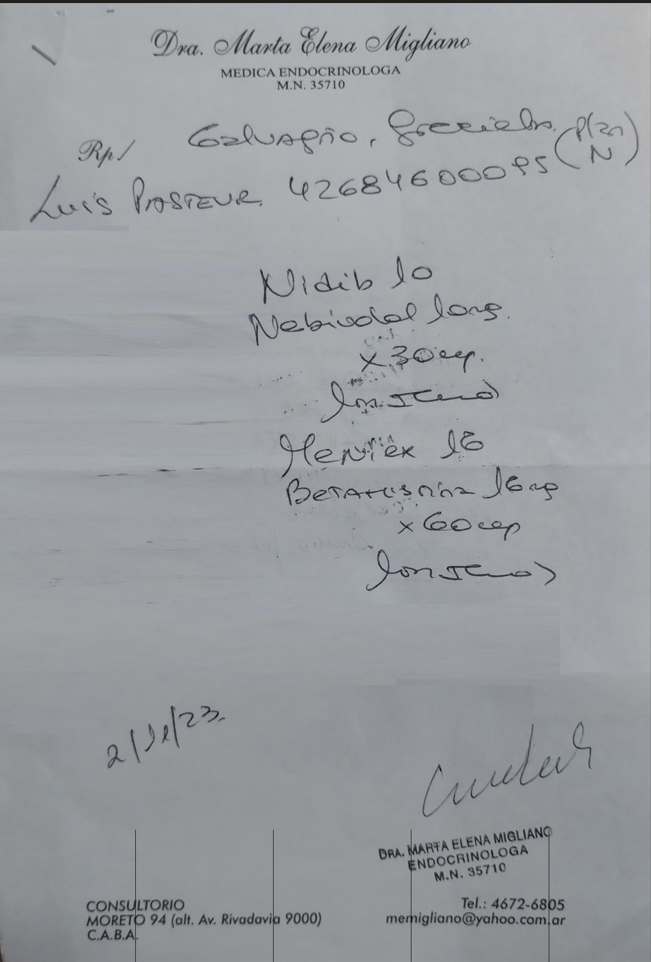 Dra. Marta Elena Migliano
MEDICA ENDOCRINOLOGA
M.N. 35710
Rp/ Galvagno, Graciela (Plan N)
Luis PASTEUR. 426846000095
Nidib 10
10mg.
x 30 cp.
(un envase)
Meniex 16
BETAHISTINA 16mg
x 60 cp
(un envase)
2/11/23.
DRA. MARTA ELENA MIGLIANO
ENDOCRINOLOGA
M.N. 35710
CONSULTORIO
MORETO 94 (alt. Av. Rivadavia 9000)
C.A.B.A.
Tel.: 4672-6805
memigliano@yahoo.com.ar